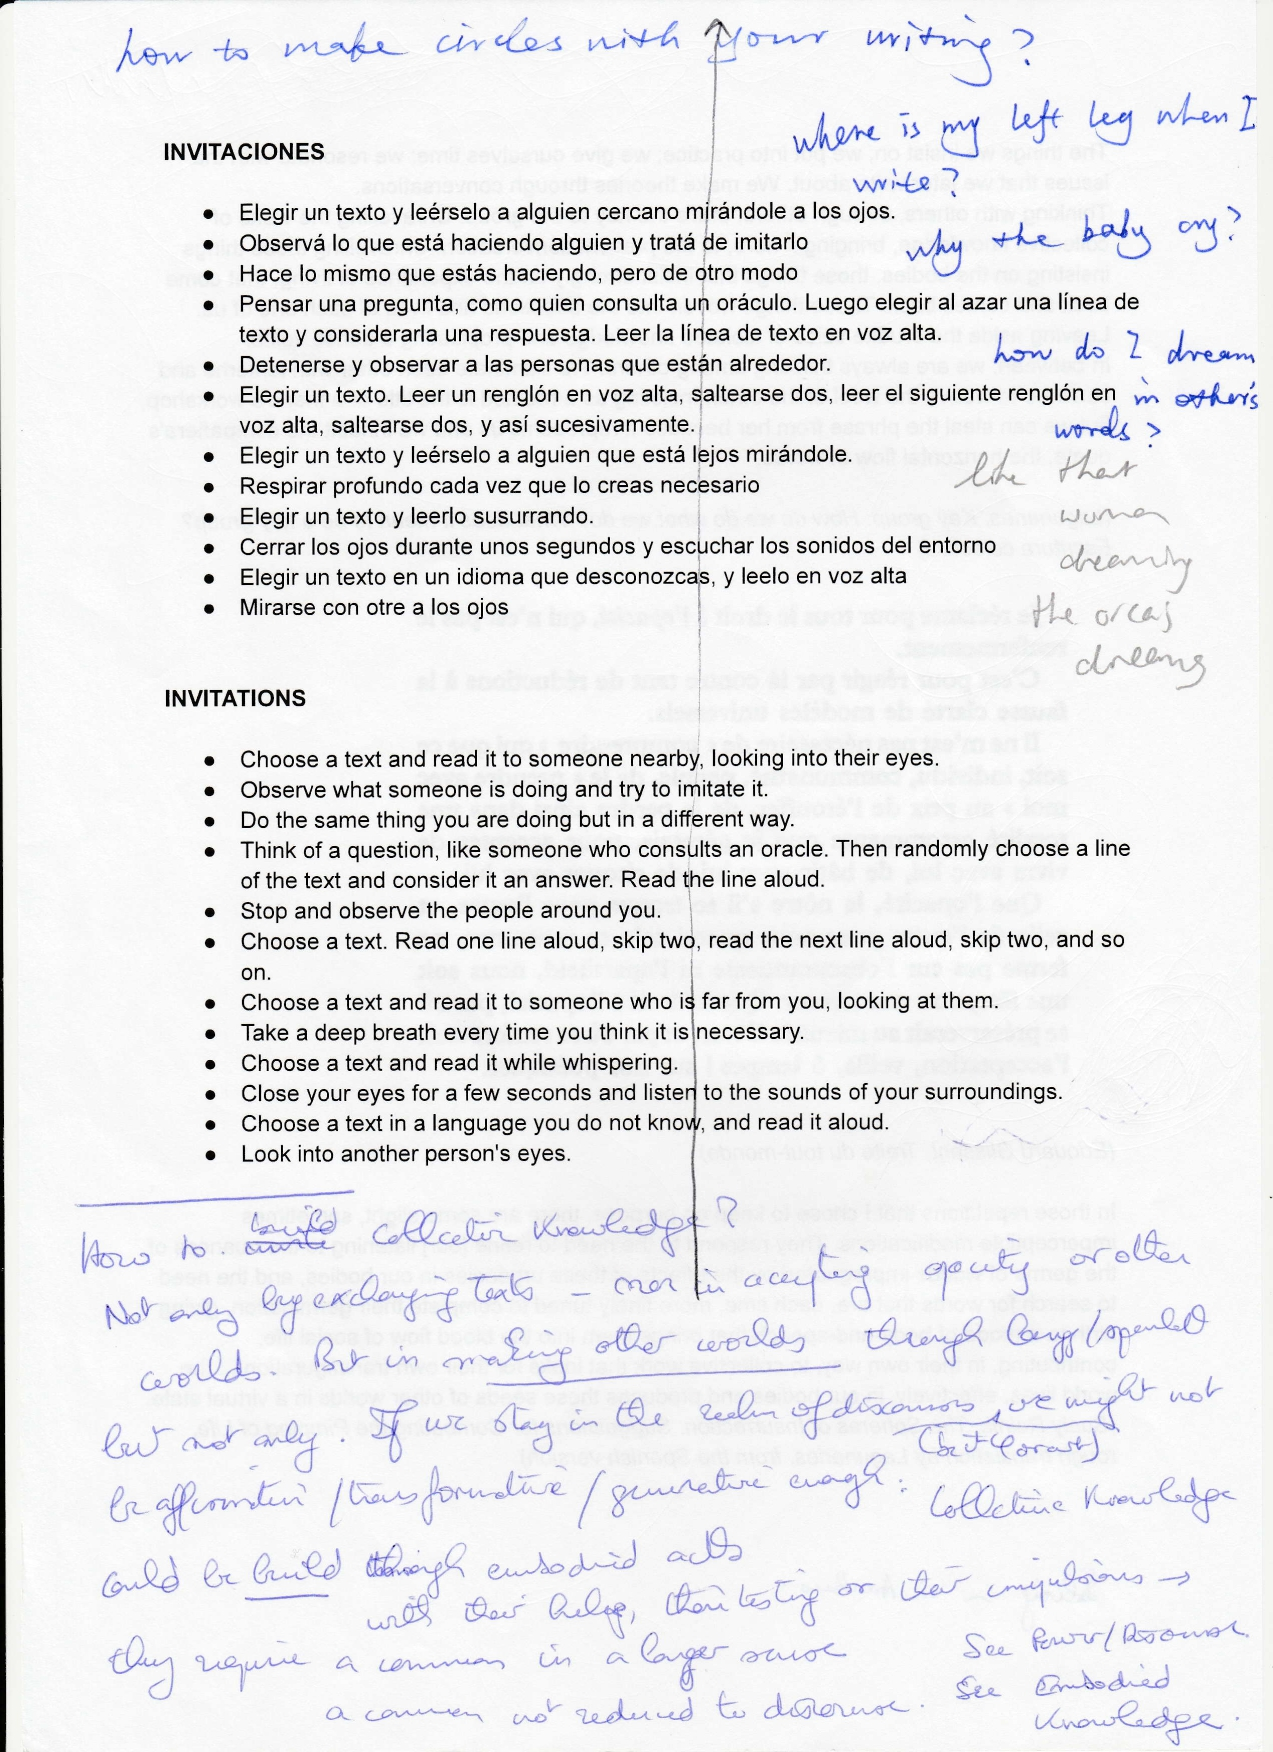 how to make circles with your writing?
where is my left leg when I
write?
why the baby cry?
how do I dream
in other's
words?
like that
women
dreaming
the orcas
dreams
INVITACIONES
● Elegir un texto y leérselo a alguien cercano mirándole a los ojos.
● Observá lo que está haciendo alguien y tratá de imitarlo
● Hace lo mismo que estás haciendo, pero de otro modo
● Pensar una pregunta, como quien consulta un oráculo. Luego elegir al azar una línea de
texto y considerarla una respuesta. Leer la línea de texto en voz alta.
● Detenerse y observar a las personas que están alrededor.
● Elegir un texto. Leer un renglón en voz alta, saltearse dos, leer el siguiente renglón en
voz alta, saltearse dos, y así sucesivamente.
● Elegir un texto y leérselo a alguien que está lejos mirándole.
● Respirar profundo cada vez que lo creas necesario
● Elegir un texto y leerlo susurrando.
● Cerrar los ojos durante unos segundos y escuchar los sonidos del entorno
● Elegir un texto en un idioma que desconozcas, y leelo en voz alta
● Mirarse con otre a los ojos
INVITATIONS
● Choose a text and read it to someone nearby, looking into their eyes.
● Observe what someone is doing and try to imitate it.
● Do the same thing you are doing but in a different way.
● Think of a question, like someone who consults an oracle. Then randomly choose a line
of the text and consider it an answer. Read the line aloud.
● Stop and observe the people around you.
● Choose a text. Read one line aloud, skip two, read the next line aloud, skip two, and so
on.
● Choose a text and read it to someone who is far from you, looking at them.
● Take a deep breath every time you think it is necessary.
● Choose a text and read it while whispering.
● Close your eyes for a few seconds and listen to the sounds of your surroundings.
● Choose a text in a language you do not know, and read it aloud.
● Look into another person's eyes.
How to build collective knowledge?
Not only by exchanging texts – nor in accepting opacity or other
worlds. But in making other worlds through lang/spoken
but not only. If we stay in the realm of discourses, we might not
be affirmative / transformative / generative enough: Collective Knowledge
could be build through embodied acts
with their help, their testing or their impulsions →
they require a common in a larger sense
a common not reduced to discourse.
See Power/Discourse
See Embodied
Knowledge.